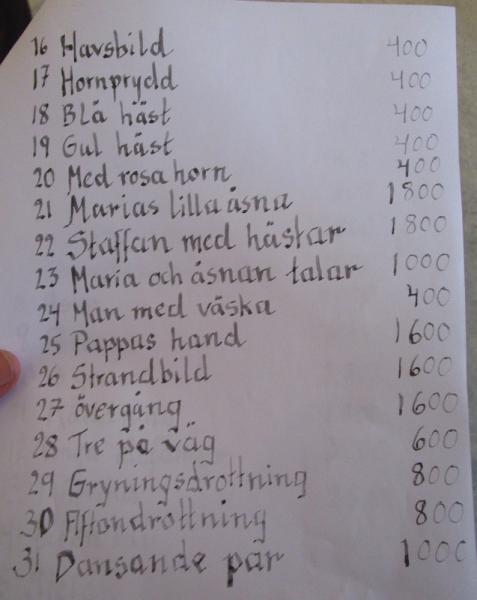 16 Havsbild 400
17 Hornprydd 400
18 Blå häst 400
19 Gul häst 400
20 Med rosa horn 400
21 Marias lilla åsna 1800
22 Staffan med hästar 1800
23 Maria och åsnan talar 1000
24 Man med väska 400
25 Pappas hand 1600
26 Strandbild 1600
27 övergång 1600
28 Tre på väg 600
29 Gryningsdrottning 800
30 Aftondrottning 800
31 Dansande par 1000